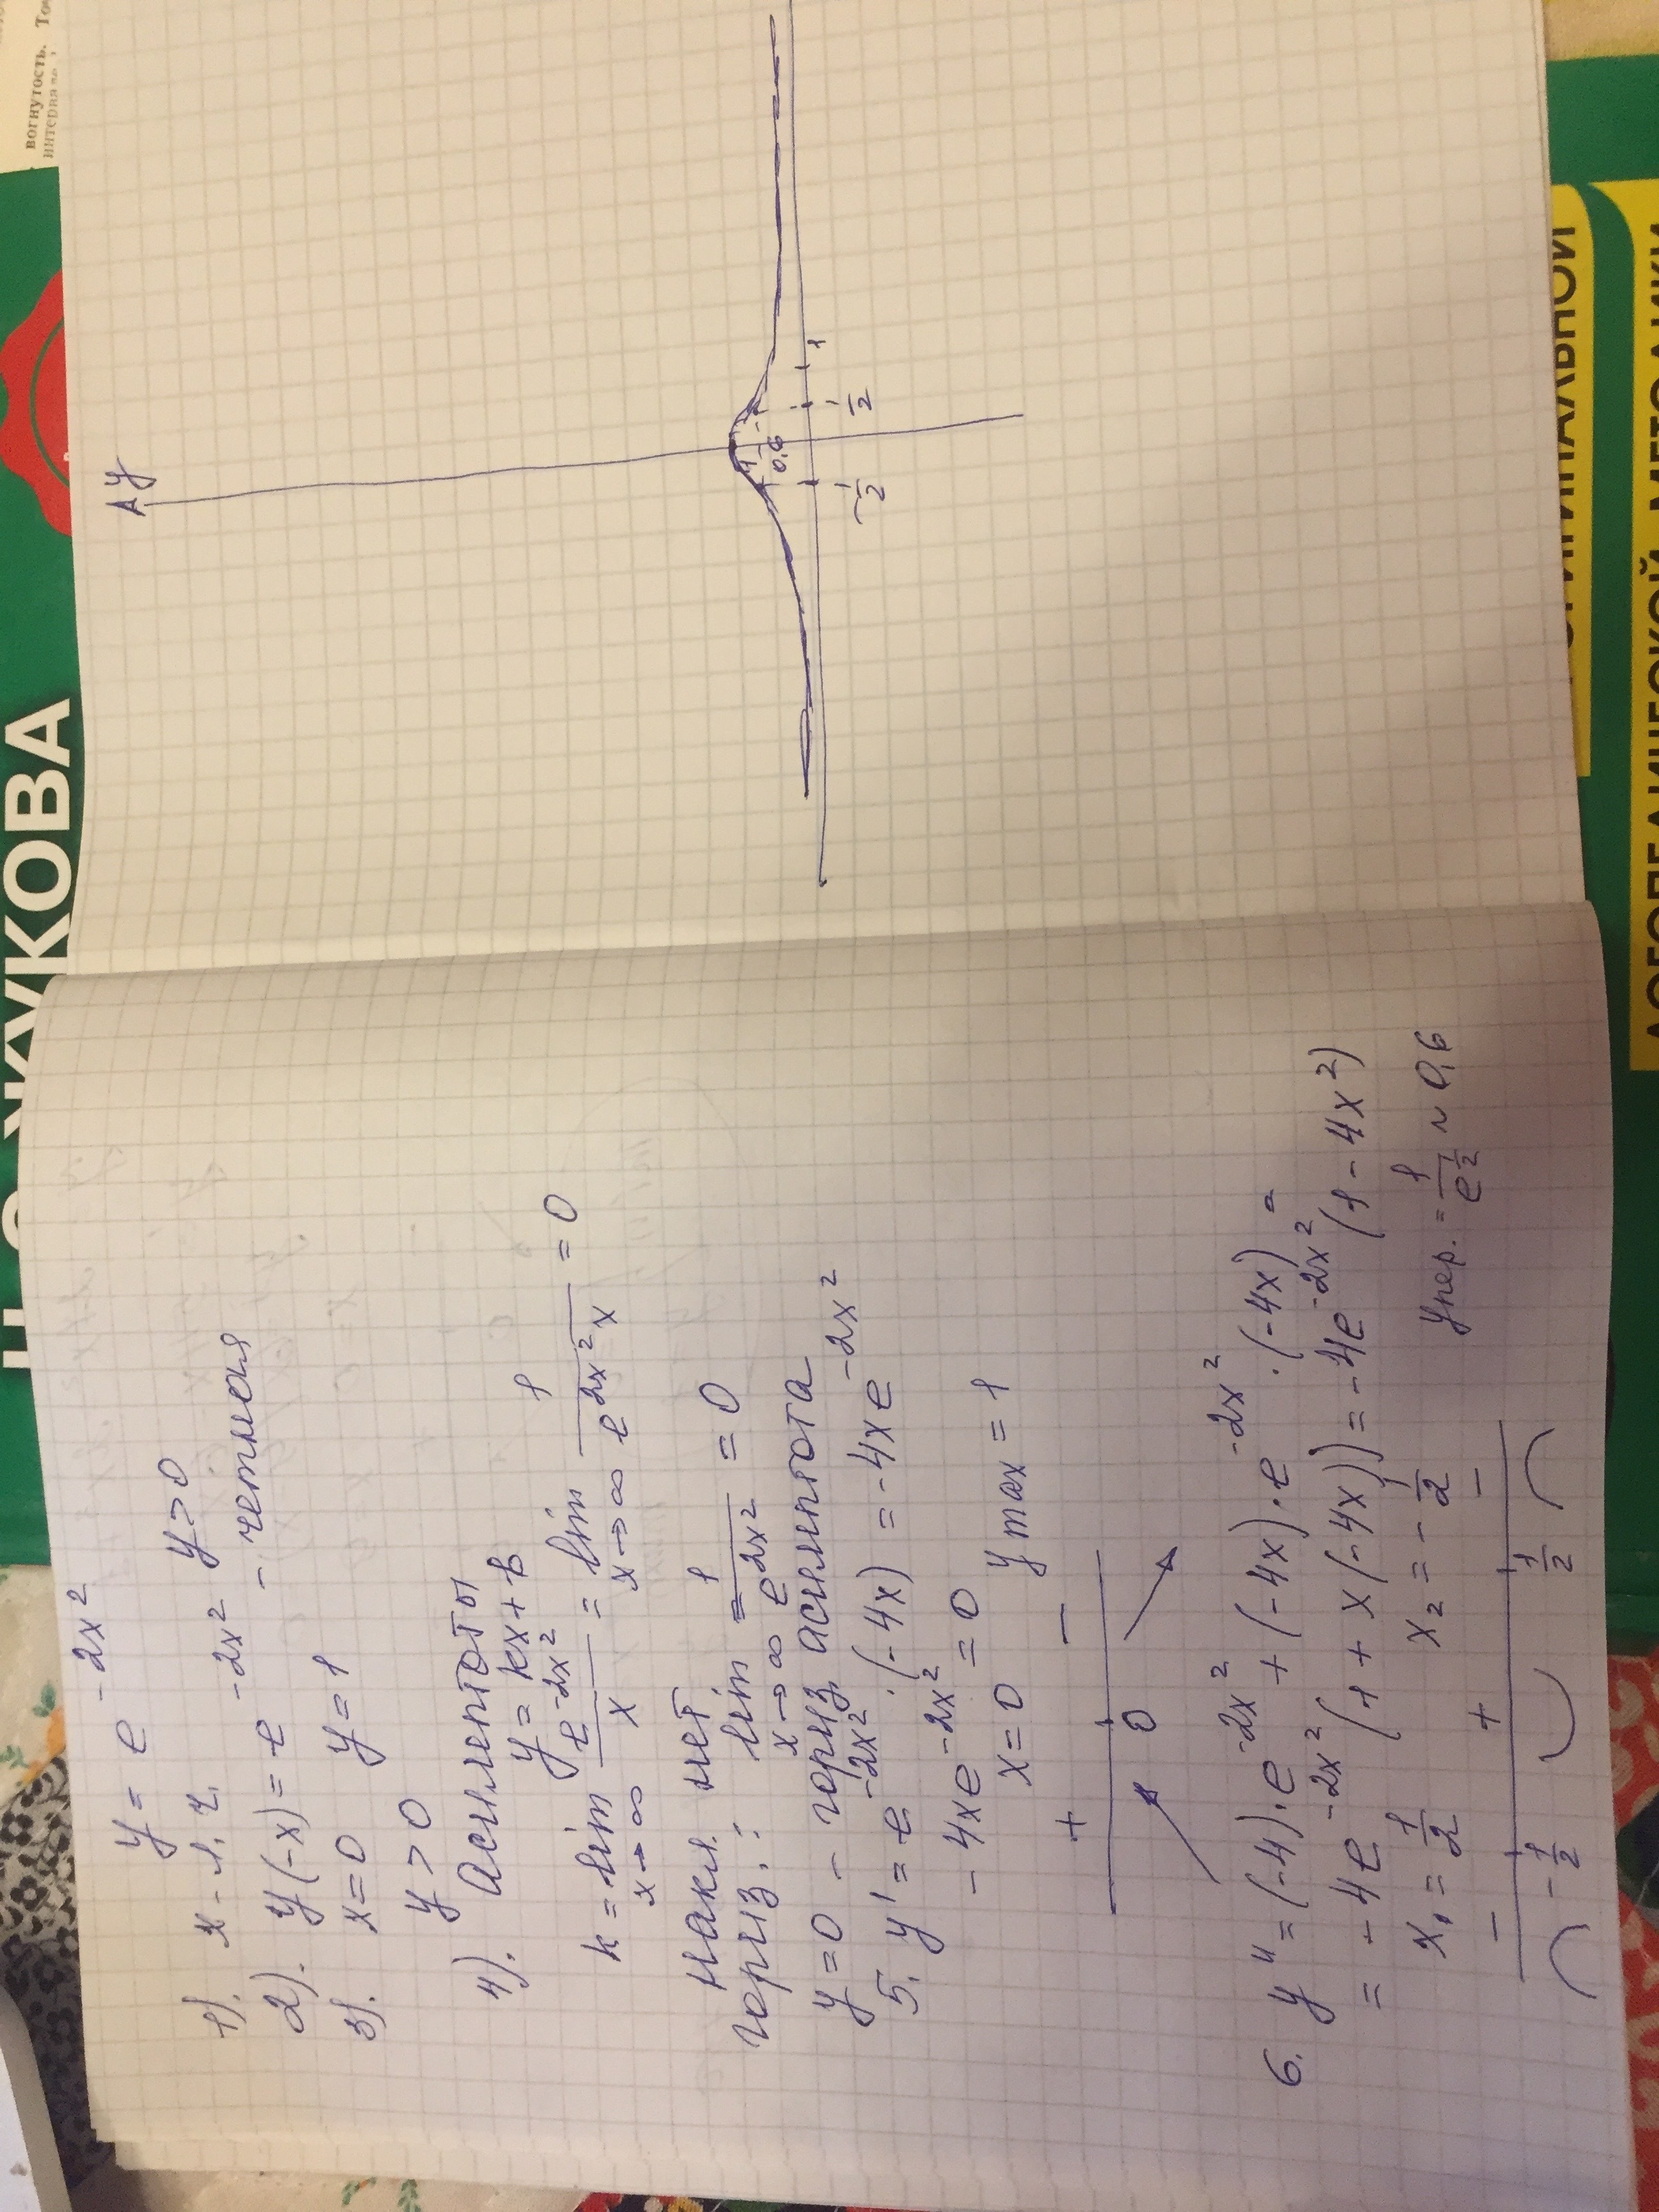 y = e^{-2x^2}
1). x - л.ч. y > 0
2). y(-x) = e^{-2x^2} - четная
3). x = 0 y = 1
y > 0
4). Асимптоты
y = kx + b
k = lim_{x→∞} \frac{e^{-2x^2}}{x} = lim_{x→∞} \frac{1}{e^{2x^2} x} = 0
накл нет
горыз.: lim_{x→∞} = \frac{1}{e^{2x^2}} = 0
y = 0 - горыз асимптота
5. y' = e^{-2x^2} · (-4x) = -4xe^{-2x^2}
-4xe^{-2x^2} = 0
x = 0 y max = 1
+ -
0
6. y" = (-4)·e^{-2x^2} + (-4x)·e^{-2x^2} · (-4x) =
= -4e^{-2x^2} (1 + x(-4x)) = -4e^{-2x^2} (1 - 4x^2)
x_1 = \frac{1}{2} x_2 = -\frac{1}{2} y пер. = \frac{1}{e^{\frac{1}{2}}} ~ 0,6
- + -
-\frac{1}{2} \frac{1}{2}
y
1
0,6
-\frac{1}{2} \frac{1}{2} 1
ЖУКОВА
вогнутость. То
интервале
ЛОГОПЕДИЧЕСКОЙ МЕТОДИКИ